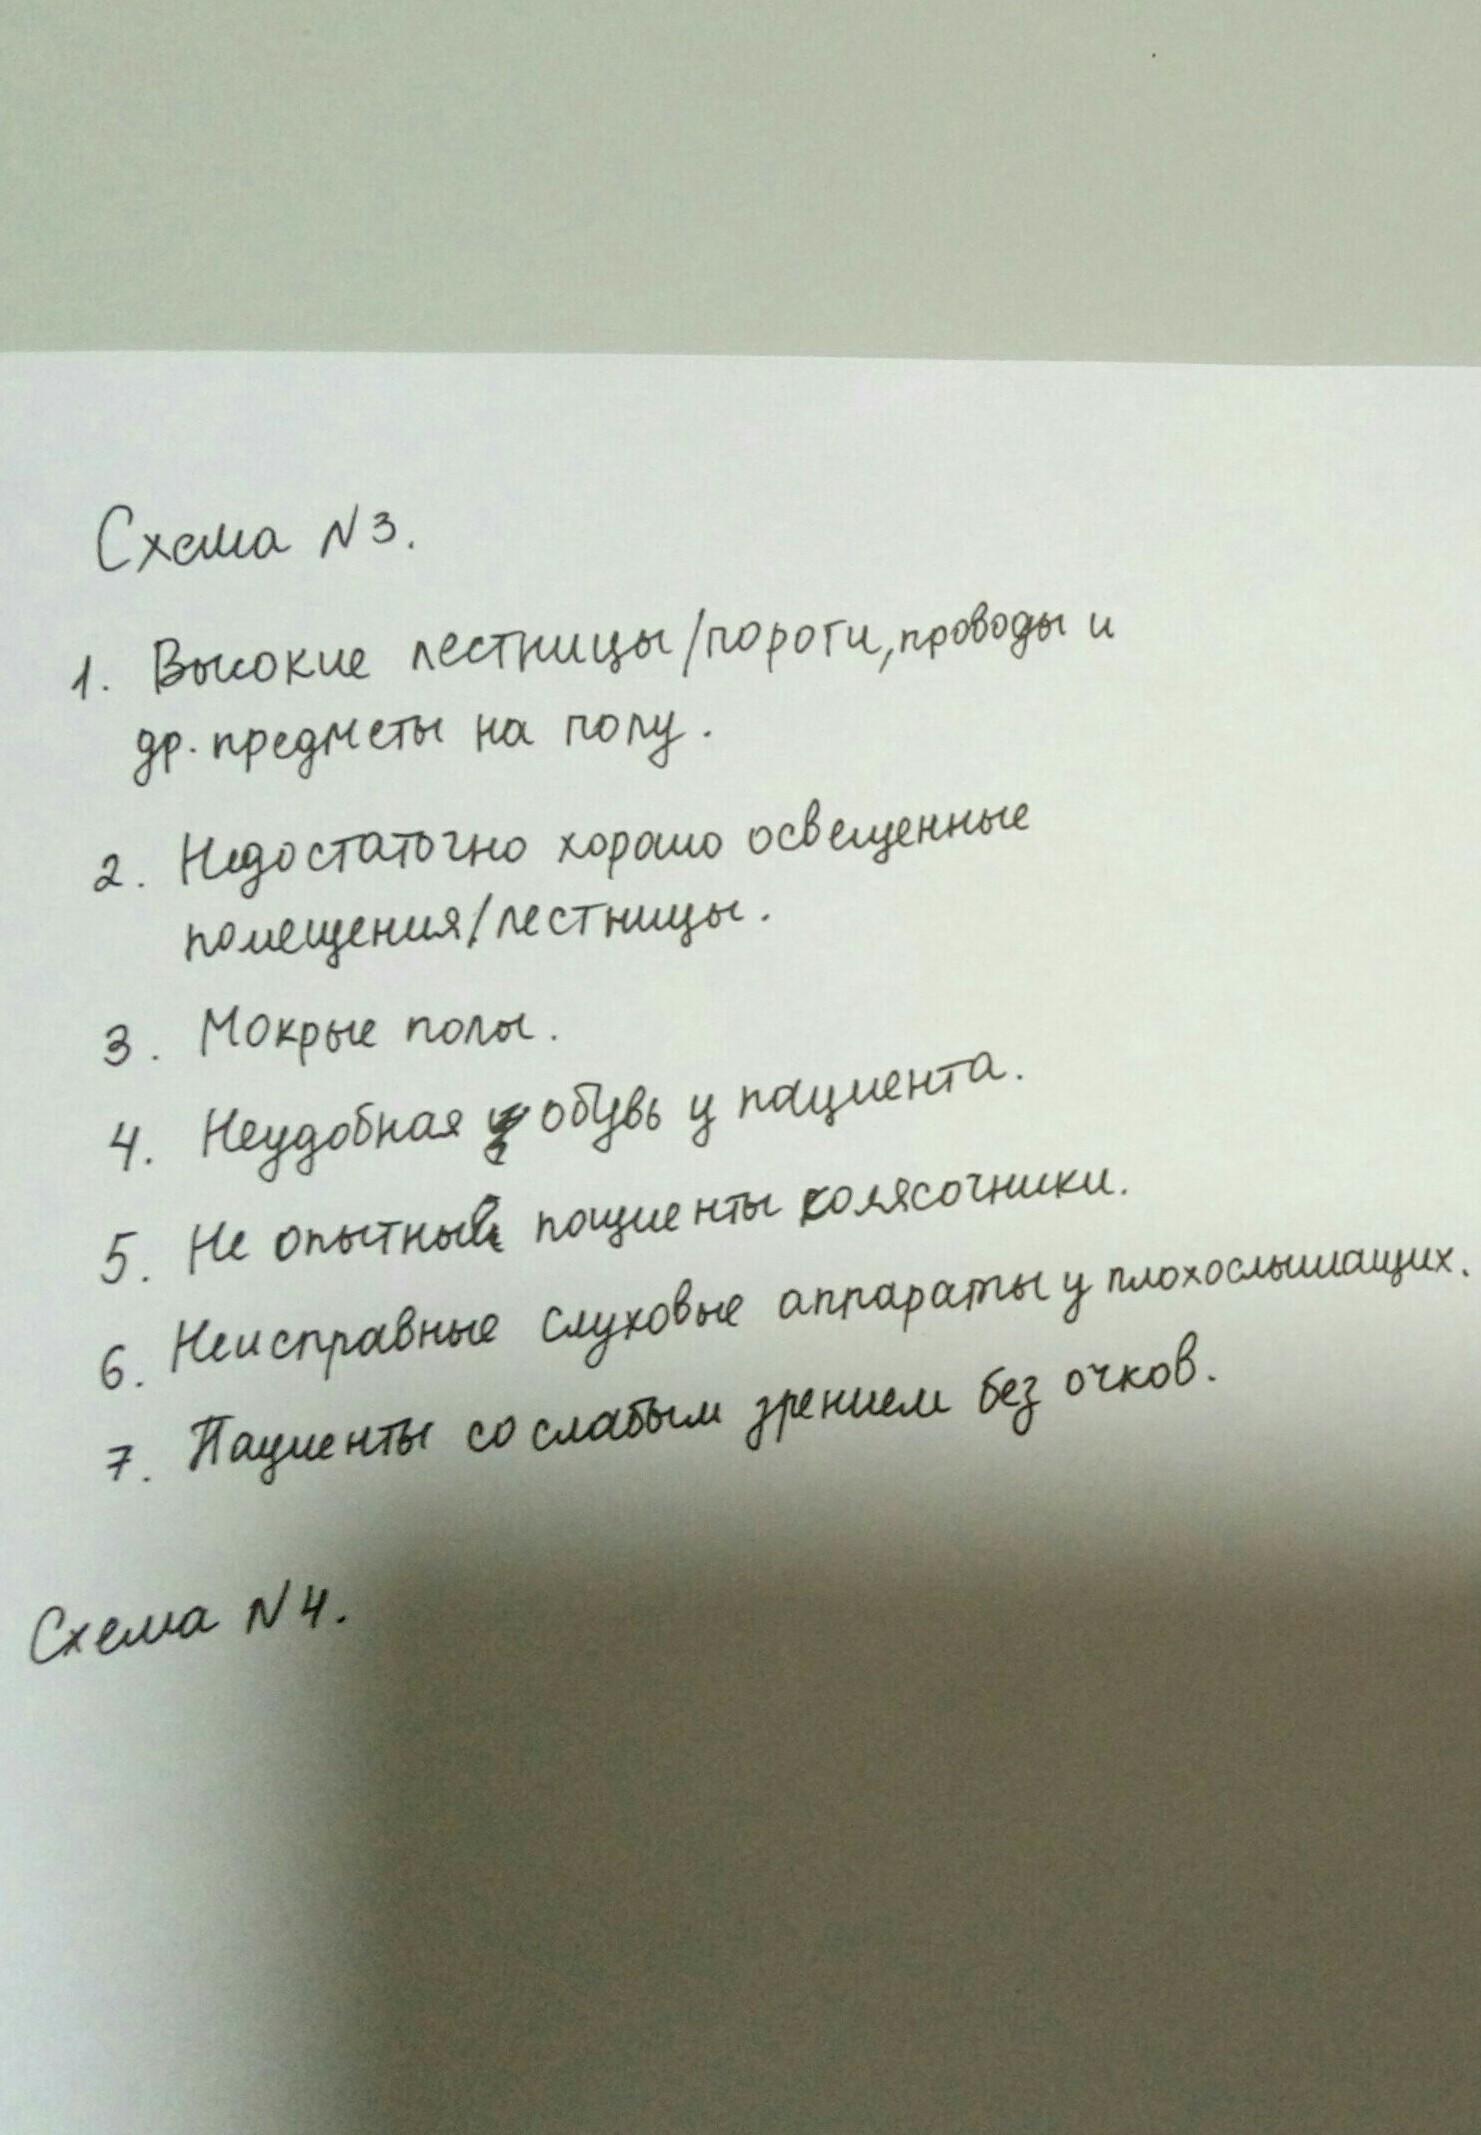 Схема N3.
1. Высокие лестницы/пороги, проводы и
др. предметы на полу.
2. Недостаточно хорошо освещенные
помещения/лестницы.
3. Мокрые полы.
4. Неудобная обувь у пациента.
5. Не опытные пациенты колясочники.
6. Неисправные слуховые аппараты у плохослышащих.
7. Пациенты со слабым зрением без очков.
Схема N4.